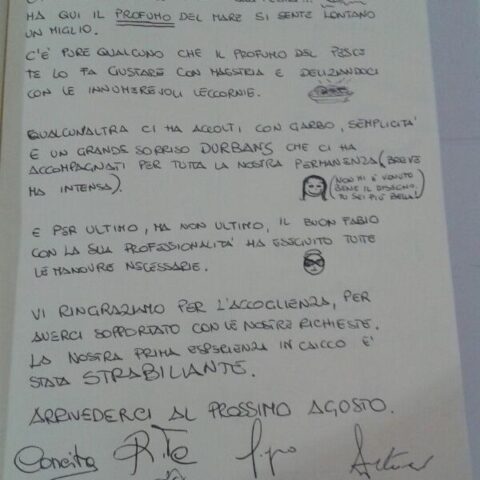 MA QUI IL PROFUMO DEL MARE SI SENTE LONTANO
UN MIGLIO.
C'E' PURE QUALCUNO CHE IL PROFUMO DEL PESCE
TE LO FA GUSTARE CON MAESTRIA E DELIZIANDOCI
CON LE INNUMEREVOLI LECCORNIE.
QUALCUN'ALTRA CI HA ACCOLTI CON GARBO, SEMPLICITA'
E UN GRANDE SORRISO DURBANS CHE CI HA
ACCOMPAGNATI PER TUTTA LA NOSTRA PERMANENZA (BREVE
MA INTENSA).
(NON MI È VENUTO
BENE IL DISEGNO,
TU SEI PIÙ BELLA)
E PER ULTIMO, MA NON ULTIMO, IL BUON FABIO
CON LA SUA PROFESSIONALITA' HA ESEGUITO TUTTE
LE MANOVRE NECESSARIE.
VI RINGRAZIAMO PER L'ACCOGLIENZA, PER
AVERCI SOPPORTATO CON LE NOSTRE RICHIESTE.
LA NOSTRA PRIMA ESPERIENZA IN CAICCO E'
STATA STRABILIANTE.
ARRIVEDERCI AL PROSSIMO AGOSTO.
Concita RITA